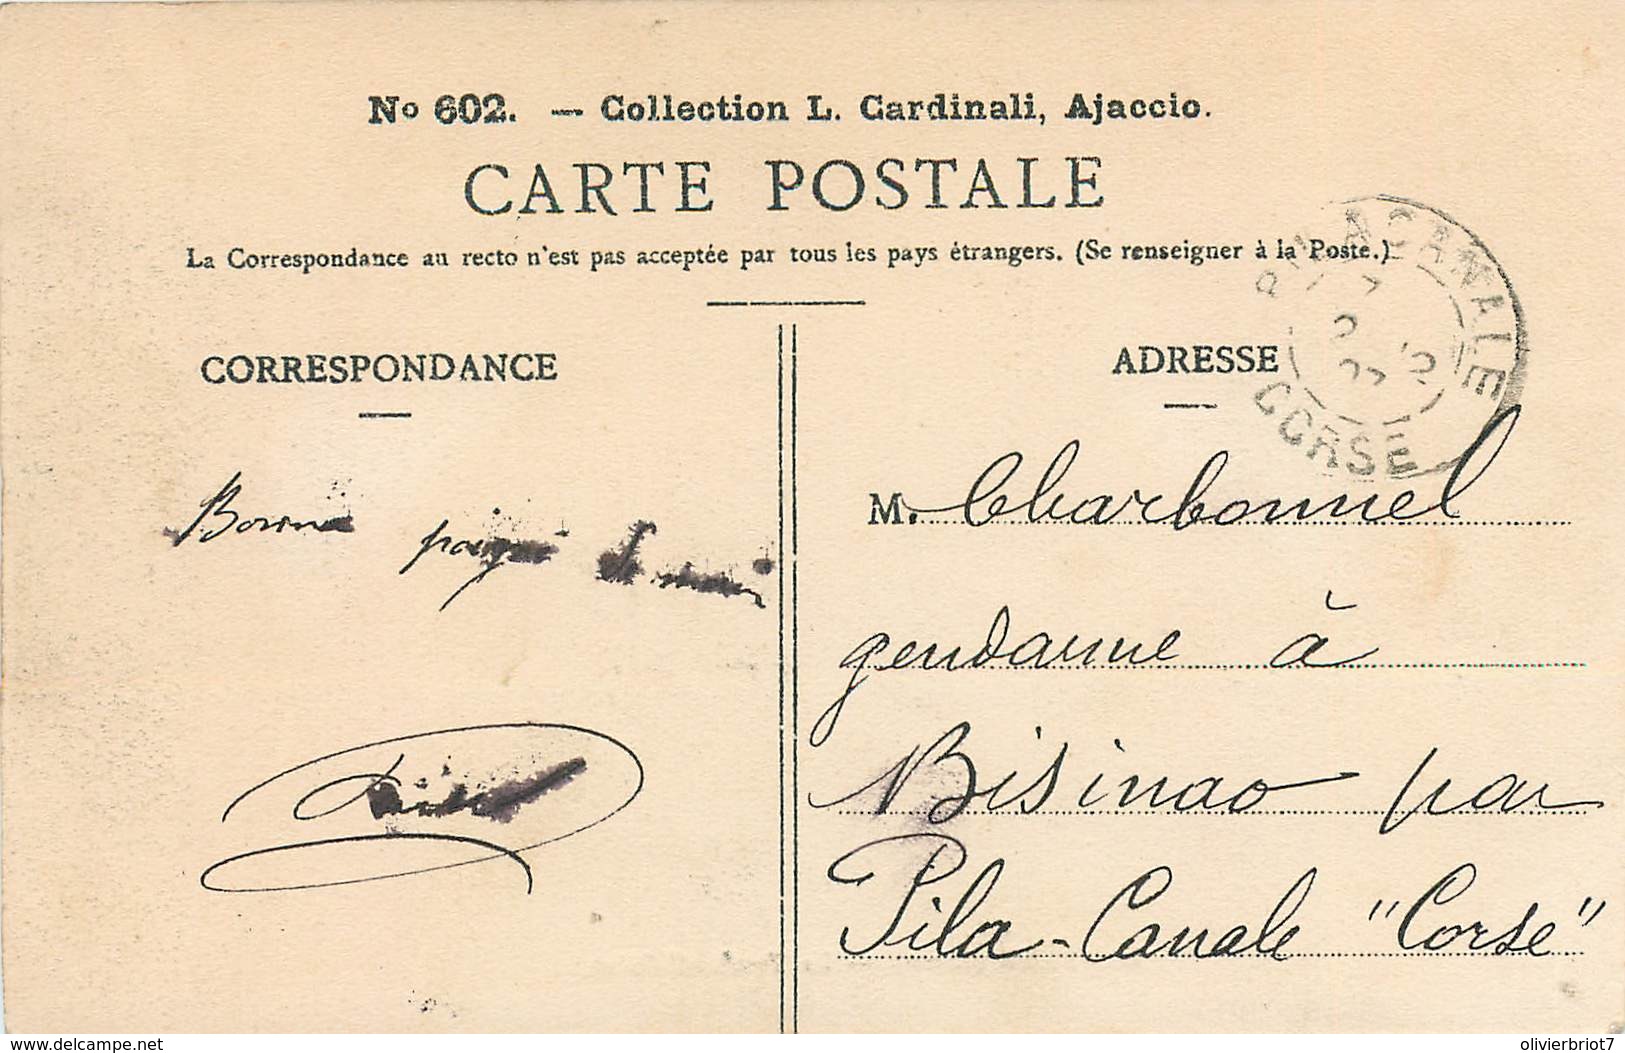 No 602. — Collection L. Cardinali, Ajaccio.
CARTE POSTALE
La Correspondance au recto n'est pas acceptée par tous les pays étrangers. (Se renseigner à la Poste.)
PILA CANALE
CORSE
CORRESPONDANCE
Bonne poignée de main
ADRESSE
M. Charbonnel
gendarme à
Bisinao par
Pila-Canale "Corse"
delcampe.net
olivierbriot7